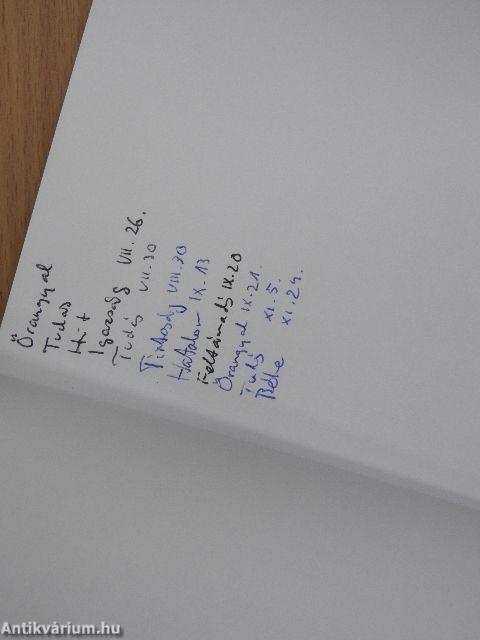 Őrangyal
Tudás
Hit
Igazság VII. 26.
Tudás VII. 30
Tisztaság VIII. 30
Hatalom IX. 13
Feltámadó IX. 20
Őrangyal IX. 21.
Tudó XI. 5.
Béke XI. 24.
Antikvárium.hu